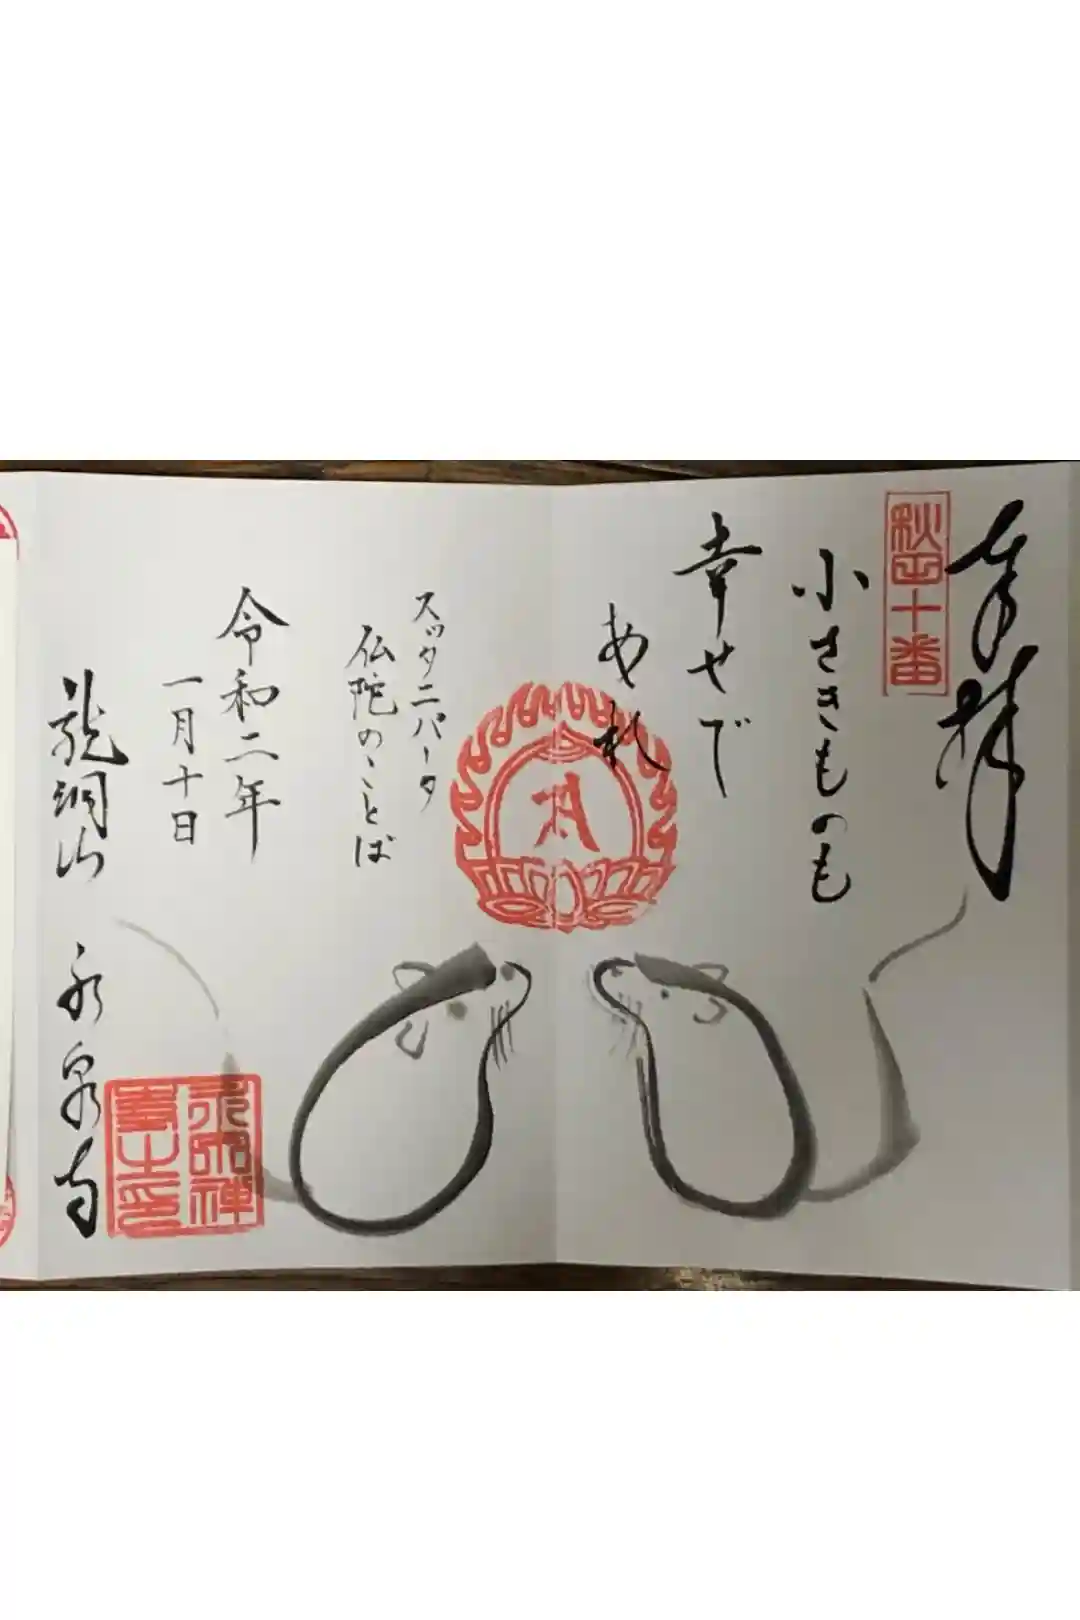 奉拝
秋田十番
小さきものも
幸せで
あれ
スッタニパータ
仏陀のことば
令和二年
一月十日
龍洞山 永泉寺
永泉禅
寺之印